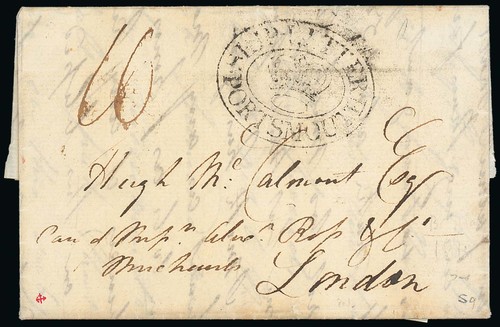 16
SHIP LETTER PORTSMOUTH
Hugh Mc Calmont Esq
Care of Mess. Alex. Ross & Co
Merchants
London